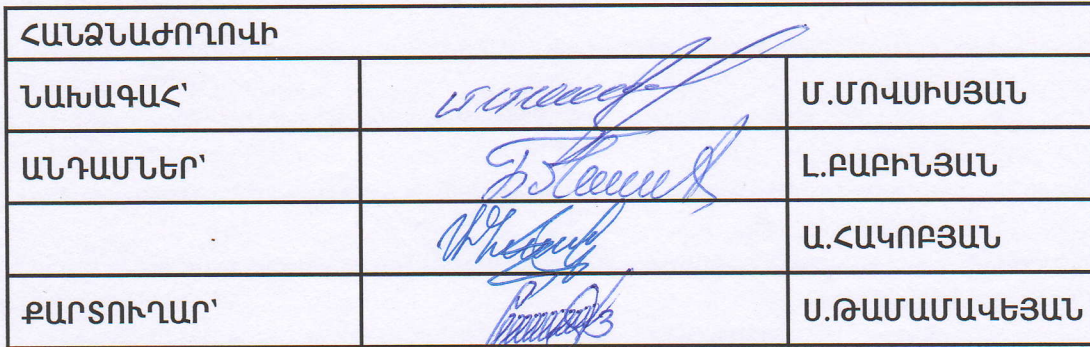 ՀԱՆՁՆԱԺՈՂՈՎԻ
ՆԱԽԱԳԱՀ՝ Մ.ՄՈՎՍԻՍՅԱՆ
ԱՆԴԱՄՆԵՐ՝ Լ.ԲԱԲԻՆՅԱՆ
Ա.ՀԱԿՈԲՅԱՆ
ՔԱՐՏՈՒՂԱՐ՝ Ս.ԹԱՄԱՄԱՎԵՅԱՆ